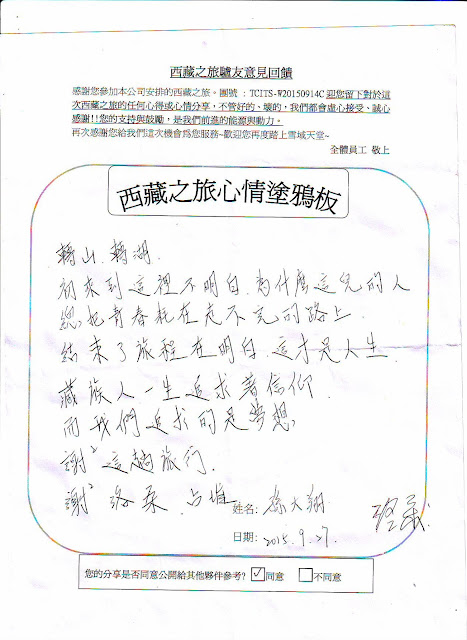 西藏之旅驢友意見回饋
感謝您參加本公司安排的西藏之旅。團號：TCITS-W20150914C 迎您留下對於這
次西藏之旅的任何心得或心情分享，不管好的、壞的，我們都會虛心接受、誠心
感謝!!您的支持與鼓勵，是我們前進的能源與動力。
再次感謝您給我們這次機會為您服務~歡迎您再度踏上雪域天堂~
全體員工 敬上
西藏之旅心情塗鴉板
轉山．轉湖．
初來到這裡不明白．為什麼這兒的人
總把青春耗在走不完的路上．
結束了旅程在明白．這才是人生．
藏族人一生追求著信仰．
而我們追求的是夢想，
謝² 這趟旅行．
謝² 洛桑．占堆
姓名: 孫大翔
日期: 2015.9.27.
您的分享是否同意公開給其他夥伴參考? ☑同意 □不同意